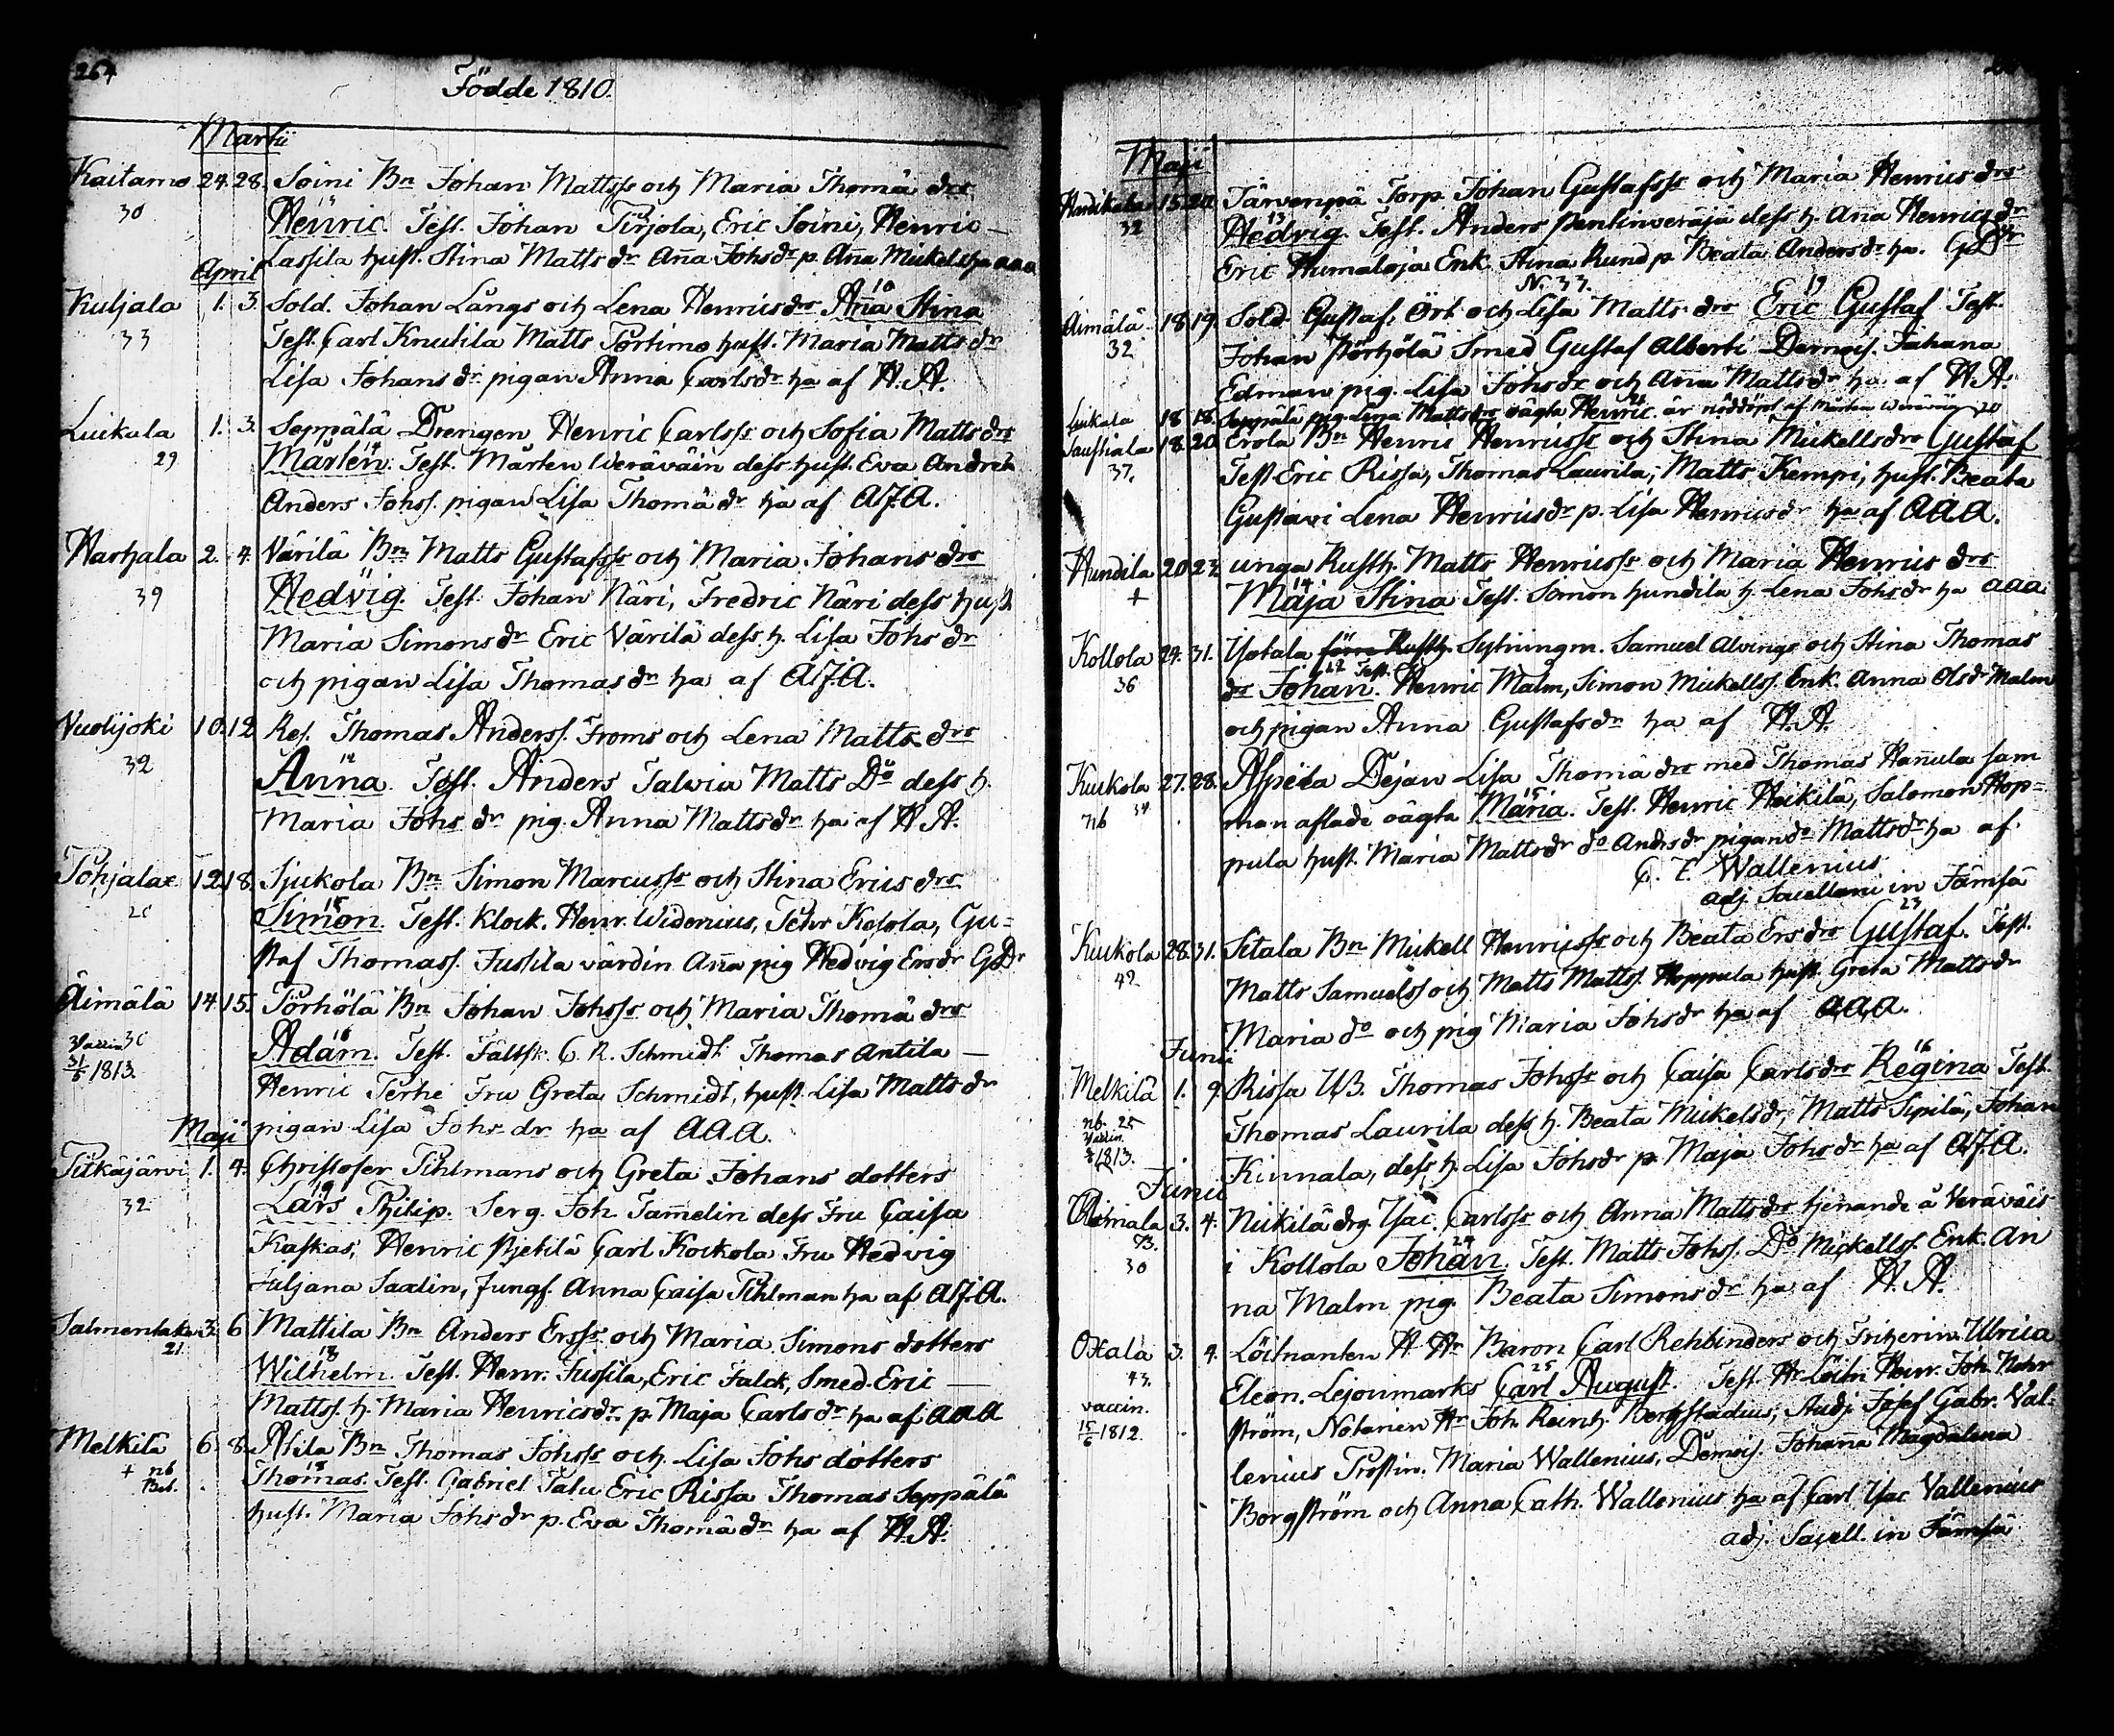 264
Födde 1810.
Martii
Kaitamo 24. 28. Soini Bn Johan Mattss och Maria Thomæ drs
30 Henric. Test. Johan Pirjola, Eric Soini, Henric
Lassila hust. Stina Matts dr Aña Johs dr p. Aña Mickels ha aaa
April
Kuljala 1. 3. Sold. Johan Långs och Lena Henricsdrs 10 Aña Stina
33 Test. Carl Knutila Matts Portimo hust. Maria Matts dr
Lisa Johans dr pigan Anna Carls dr ha af H.A.
Luikala 1. 3. Seppälä Drengen Henric Carlss och Sofia Matts drs
29 Mårten. Test. Mårten Weräväin dess hust. Eva Andreæ
Anders Johss. pigan Lisa Thomæ dr ha af AJ.A.
Harhala 2. 4. Värilä Bn Matts Gustafss och Maria Johans drs
39 Hedvig. Test. Johan Näri, Fredric Näri dess hust
Maria Simons dr Eric Värilä dess h. Lisa Johs dr
och pigan Lisa Thomas dr ha af AJ.A.
Vuolijoki 10. 12 Res. Thomas Anderss. Froms och Lena Matts drs
32 Anna. Test. Anders Talvia Matts Do dess h.
Maria Johs dr pig. Anna Matts dr ha af H.A.
Pohjala 12. 18. Sjukola Bn Simon Marcuss och Stina Erics drs
15 Simon. Test. Klock. Henr. Widenius, Petr Kokola, Gu=
staf Thomass. Jussila värdin. Aña pig Hedvig Ersdr GDr
Äimälä 14. 15. Pörhölä Bn Johan Johss och Maria Thomæ drs
Vaccin 30 16 Adam. Test. Fältsk. C. R. Schmidt Thomas Antila
1813. Henric Perhe Fru Greta Schmidt, hust. Lisa Matts dr
pigan Lisa Johs dr ha af A.A.A.
Maji
Pitkäjärvi 1. 4. Christofer Pihlmans och Greta Johans dotters
32 Lars Philip. Serg. Joh. Tam̃elin dess Fru Caisa
Kaskas, Henric Pjetilä Carl Kockola Fru Hedvig
Juljana Saalin, Jungf. Anna Caisa Pihlman ha af AJ.A.
Salmentaka 3. 6 Mattila Bn Anders Erss och Maria Simons dotters
21 18 Wilhelm. Test. Henr. Jussila, Eric Falck, Smed. Eric
Mattss. h. Maria Henricsdr. p. Maja Carls dr ha af aaa
Melkilä 6. 8. Atila Bn Thomas Johss och Lisa Johs dotters
+ nb Thomas. Test. Gabriel Talu Eric Rissa Thomas Seppälä
hust. Maria Johs dr p. Eva Thomæ dr ha af H.A.
Maji
Handikala 15. 20. Järvenpä Torp. Johan Gustafss och Maria Henrics drs
32 13 Hedvig. Test. Anders Penkinveräjä dess h. Ana Henrics dr
Eric Humaloja Enk. Stina Rund p. Beata Anders dr ha. GDr
N. 33.
Äimälä 18. 19. Sold. Gustaf. Ört och Lisa Matts drs 19 Eric Gustaf Test.
32 Johan Pörhölä Smed Gustaf Alberti Demois. Johana
Edman pig. Lisa Johs dr och Aña Matts dr ha af H.A.
Luikala 18 18. Seppälä pig. Lena Matts drs oägta Henric är nöddöpt af Mårten Weräväin
Saustiala 18. 20 Erola Bn Henric Henricss och Stina Mickells drs Gustaf
37. Test Eric Rissa, Thomas Laurila, Matts Kempi, hust. Beata
Gustavi Lena Henrics dr p. Lisa Henrics dr ha af A.A.A.
Hundila 20. 27. unga Rusth. Matts Henricss och Maria Henrics drs
+ 14 Maja Stina Test. Simon hundila h. Lena Johs dr ha aaa
Kollola 24. 31. Ylotala förra Rusth. Sytningm. Samuel Alvings och Stina Thomas
36 drs Johan. Test. Henric Malm, Simon Mickellss. Enk. Anna Ols dr Malm
och pigan Anna Gustafs dr ha af H.A.
Kuckola 27. 28. Aspeila Dejan Lisa Thomæ drs med Thomas Hañula sam
nb 34 man aflade oägta 15 Maria. Test. Henric Heikilä, Salomon Hop=
pula hust. Maria Matts dr do Anders dr pigan do Matts dr ha af
C. I. Wallenius
adj. Sacellani in Jämsä
Kuckola 28. 31. Sitala Bn Mickell Henricss och Beata Ers drs 23 Gustaf. Test.
42 Matts Samuelss och Matts Mattss. Hoppula hust. Greta Matts dr
Maria do och pig Maria Johs dr ha af A.A.A.
Junii
Melkilä 1. 9. Rissa UB. Thomas Johss och Caisa Carls drs 16 Regina Test.
nb. 25 Thomas Laurila dess h. Beata Mickels dr, Matts Sipilä, Johan
Vaccin. 1813. Kinnala, dess h. Lisa Johs dr p. Maja Johs dr ha af AJ.A.
Junii
Äimälä 3. 4. Nickilä drg. Isac. Carlss och Anna Matts drs tjenande å Veräväis
30 i Kollola 24 Johan. Test. Matts Johss. Do Mickellss. Enk. An
na Malm pig. Beata Simons dr ha af H.A.
Oxala 3. 4. Löitnanten H. Hr Baron Carl Rehbinders och Friherin. Ulrica
43. Eleon. Lejonmarks 25 Carl August. Test. Hr Löitn Henr. Joh. Nohr
vaccin. ström, Notarien Hr Joh. Reinh. Bergstadius, Audj. Josef Gabr. Val=
15/6 1812. lenius Prostin. Maria Wallenius, Demois. Johaña Magdalena
Borgström och Anna Cath. Wallenius ha af Carl Isac Vallenius
adj. Sacell. in Jämsä